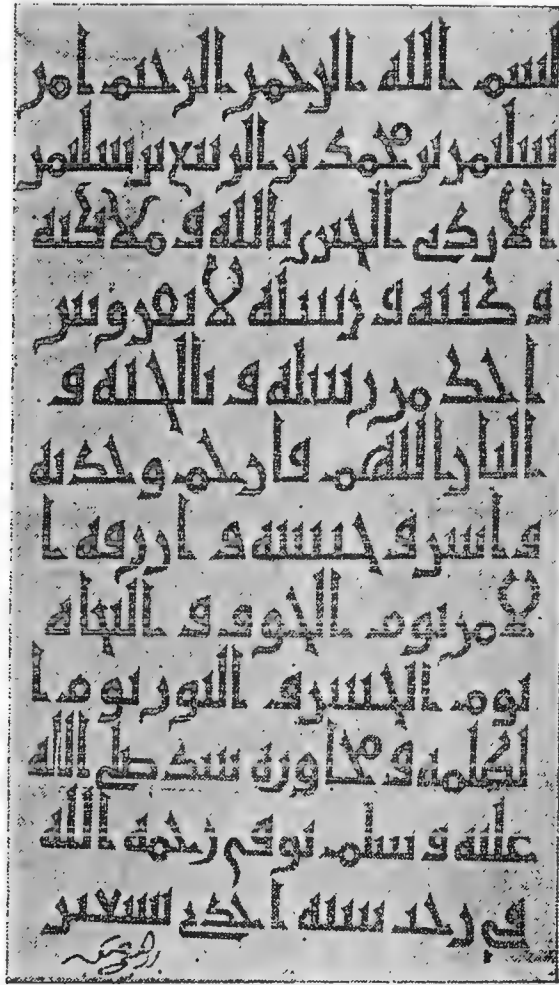 بسم الله الرحمن الرحيم امن
سليمن بن محمد بن الربيع بن سليمن
الازدي بالله و ملائكته
و كتبه و رسله لا يفرق بين
احد من رسله و بالجنه و
النار اللهم فارحم وحدته
و انس وحشته و ارزقه ا
لامن يوم الخوف و النجاه
يوم الحشر و النور يوم ا
لظلمه و مجاوره نبيك صلى الله
عليه و سلم توفي رحمه الله
في رجب سنه احدى